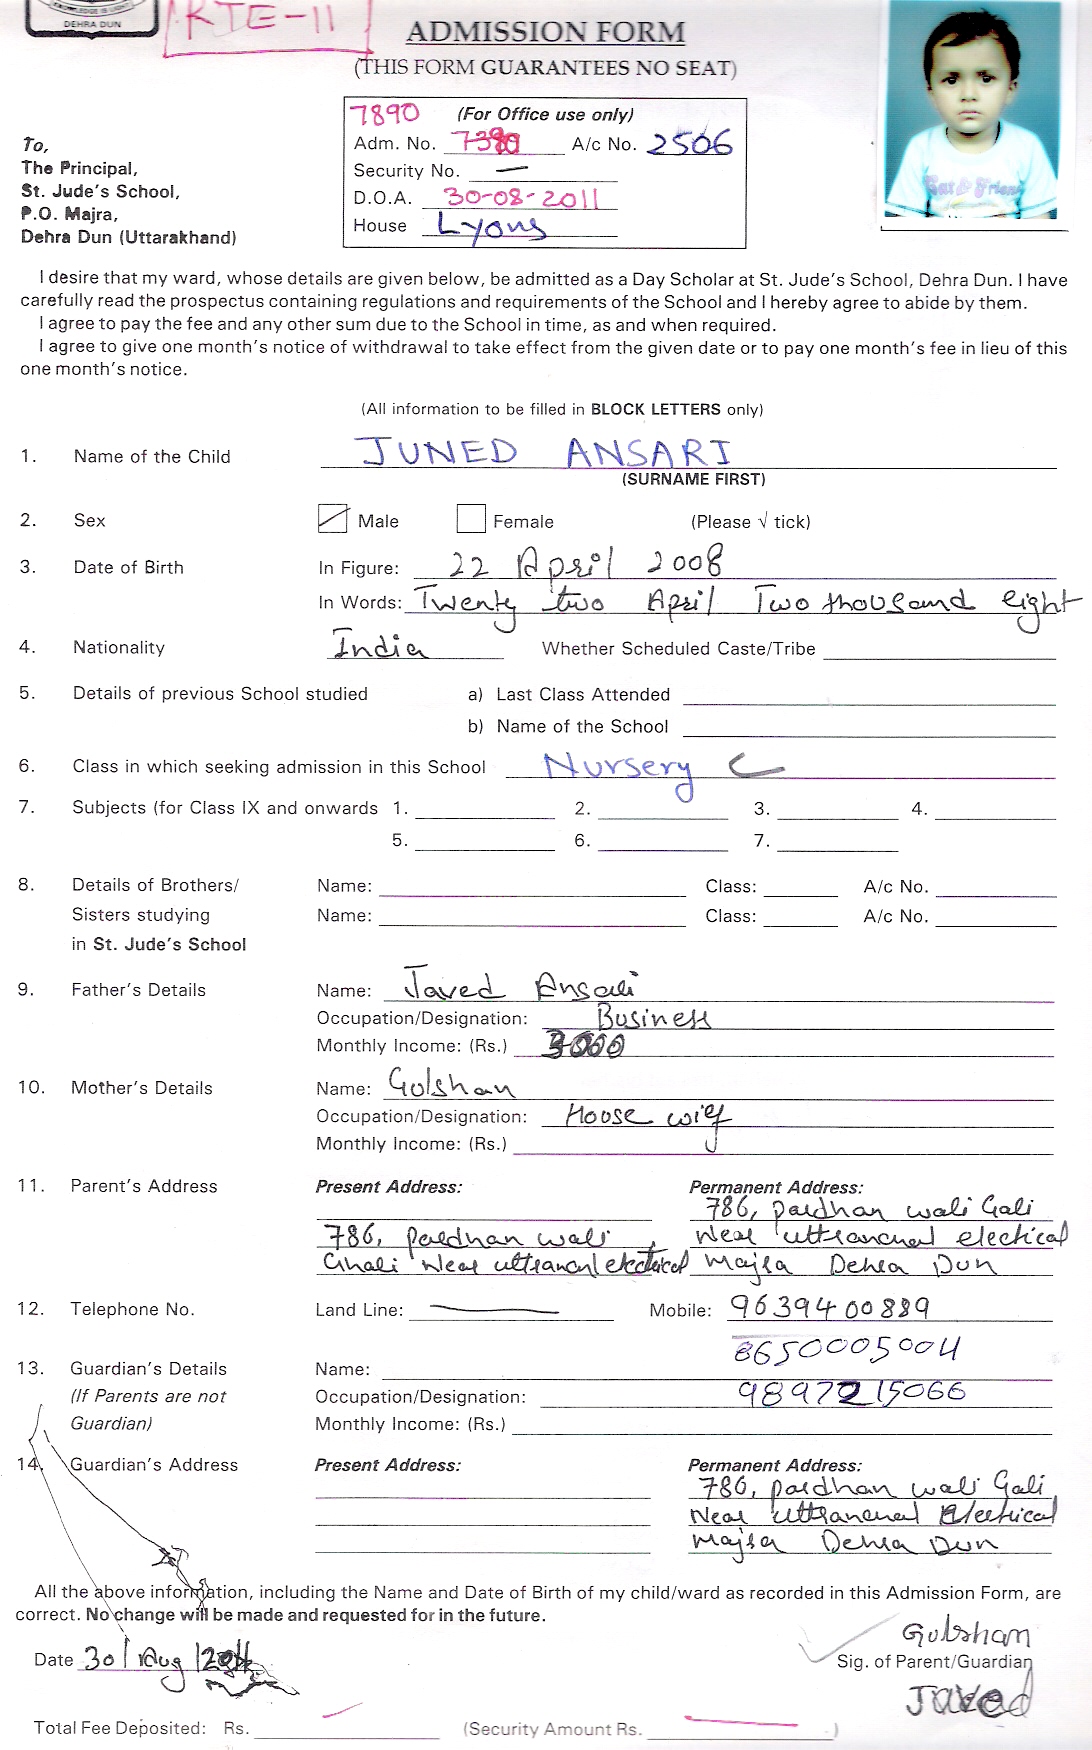 DEHRA DUN
RTE-11
ADMISSION FORM
(THIS FORM GUARANTEES NO SEAT)
7890 (For Office use only)
Adm. No. A/c No. 2506
Security No. —
D.O.A. 30-08-2011
House Lyons
To,
The Principal,
St. Jude's School,
P.O. Majra,
Dehra Dun (Uttarakhand)
I desire that my ward, whose details are given below, be admitted as a Day Scholar at St. Jude's School, Dehra Dun. I have
carefully read the prospectus containing regulations and requirements of the School and I hereby agree to abide by them.
I agree to pay the fee and any other sum due to the School in time, as and when required.
I agree to give one month's notice of withdrawal to take effect from the given date or to pay one month's fee in lieu of this
one month's notice.
(All information to be filled in BLOCK LETTERS only)
1. Name of the Child JUNED ANSARI
(SURNAME FIRST)
2. Sex Male Female (Please √ tick)
3. Date of Birth In Figure: 22 April 2008
In Words: Twenty two April Two thousand eight
4. Nationality India Whether Scheduled Caste/Tribe
5. Details of previous School studied a) Last Class Attended
b) Name of the School
6. Class in which seeking admission in this School Nursery C
7. Subjects (for Class IX and onwards 1. 2. 3. 4.
5. 6. 7.
8. Details of Brothers/ Name: Class: A/c No.
Sisters studying Name: Class: A/c No.
in St. Jude's School
9. Father's Details Name: Javed Ansari
Occupation/Designation: Business
Monthly Income: (Rs.) 3000
10. Mother's Details Name: Gulshan
Occupation/Designation: House wif
Monthly Income: (Rs.)
11. Parent's Address Present Address: Permanent Address:
786, pardhan wali Gali
786, pardhan wali Near uttranchal electical
Ghali Near uttranchal electrical Majra Dehra Dun
12. Telephone No. Land Line: — Mobile: 9639400889
8650005004
13. Guardian's Details Name:
(If Parents are not Occupation/Designation: 9897215066
Guardian) Monthly Income: (Rs.)
14. Guardian's Address Present Address: Permanent Address:
786, pardhan wali Gali
Near uttranchal Electrical
Majra Dehra Dun
All the above information, including the Name and Date of Birth of my child/ward as recorded in this Admission Form, are
correct. No change will be made and requested for in the future.
Gulshan
Date 30/Aug/2011 Sig. of Parent/Guardian
Javed
Total Fee Deposited: Rs. (Security Amount Rs. )